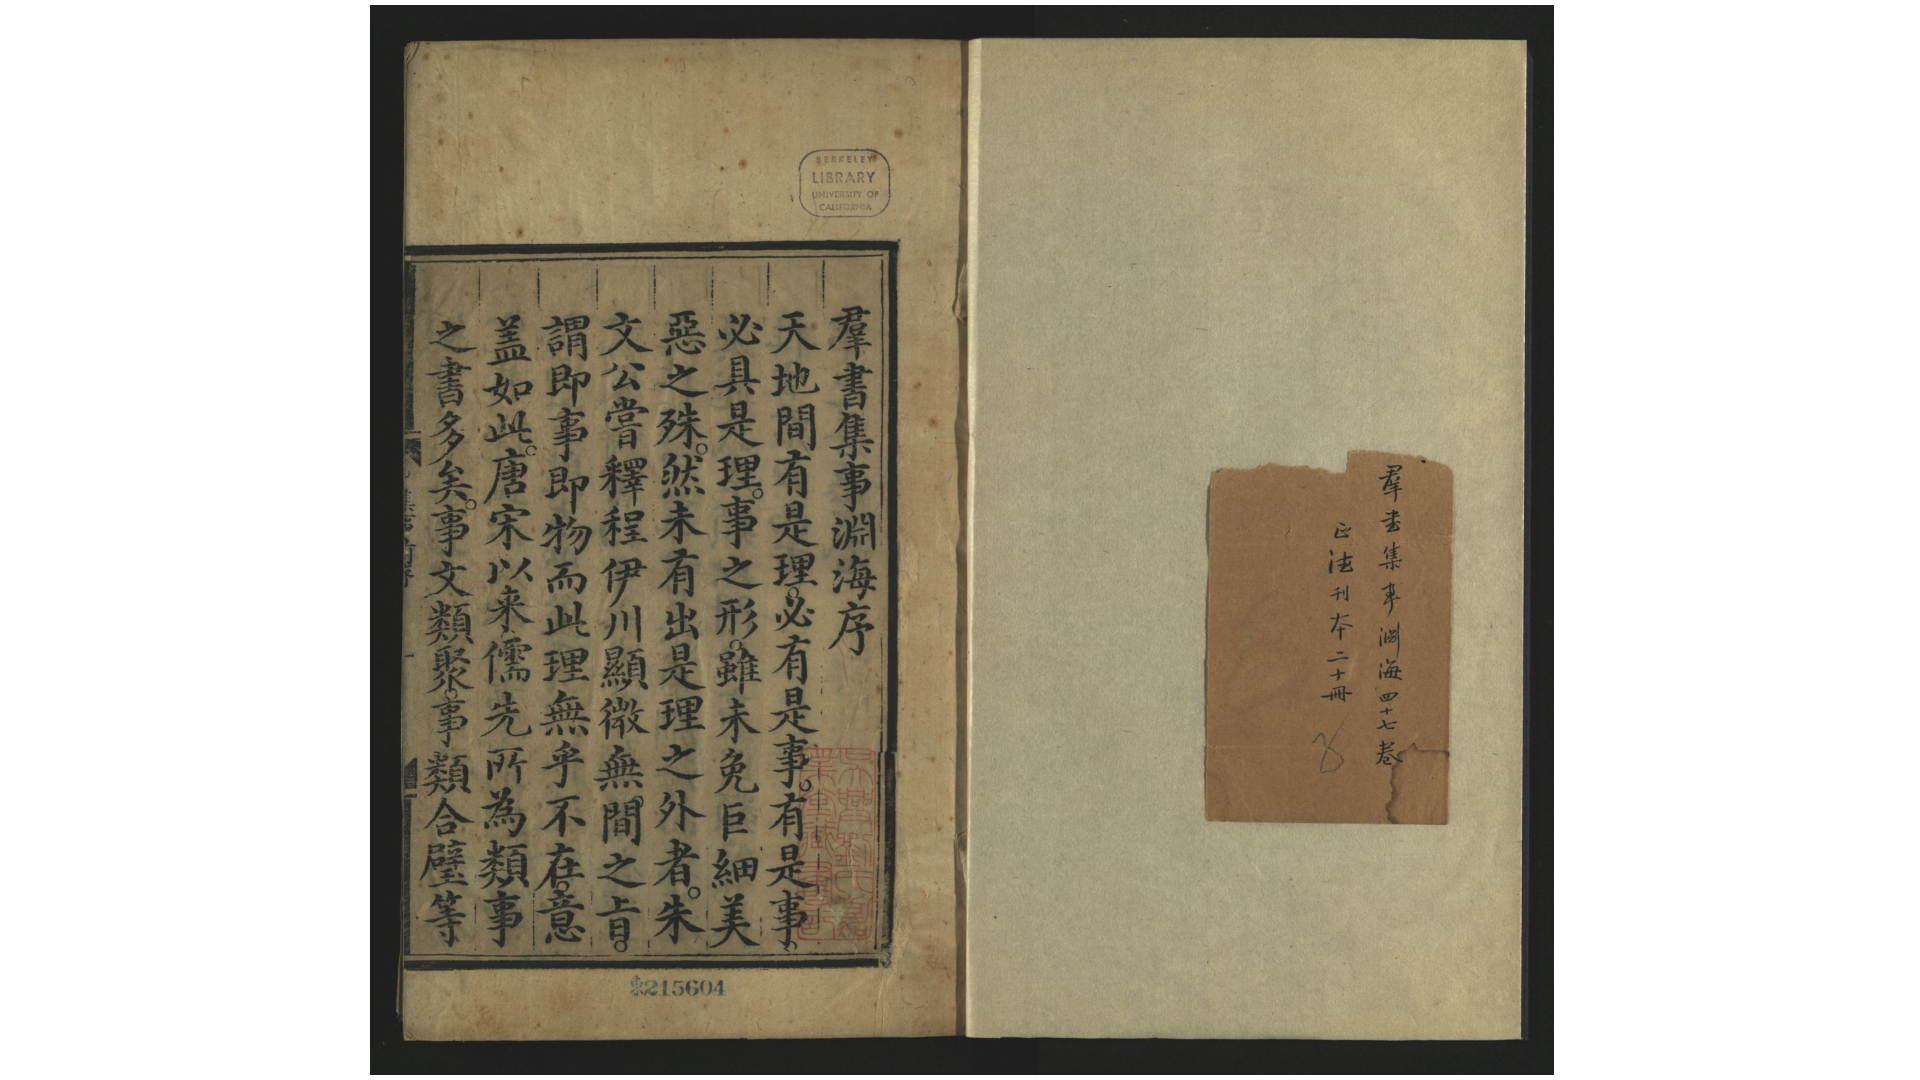 羣書集事淵海四十七卷
正德刊本二十冊
8
BERKELEY
LIBRARY
UNIVERSITY OF
CALIFORNIA
羣書集事淵海序
天地間有是理。必有是事。有是事、
必具是理。事之形。雖未免巨細美
惡之殊。然未有出是理之外者。朱
文公嘗釋程伊川顯微無間之旨。
謂即事即物而此理無乎不在。意
盖如此。唐宋以来、儒先所為類事
之書多矣。事文類聚。事類合璧等
東215604